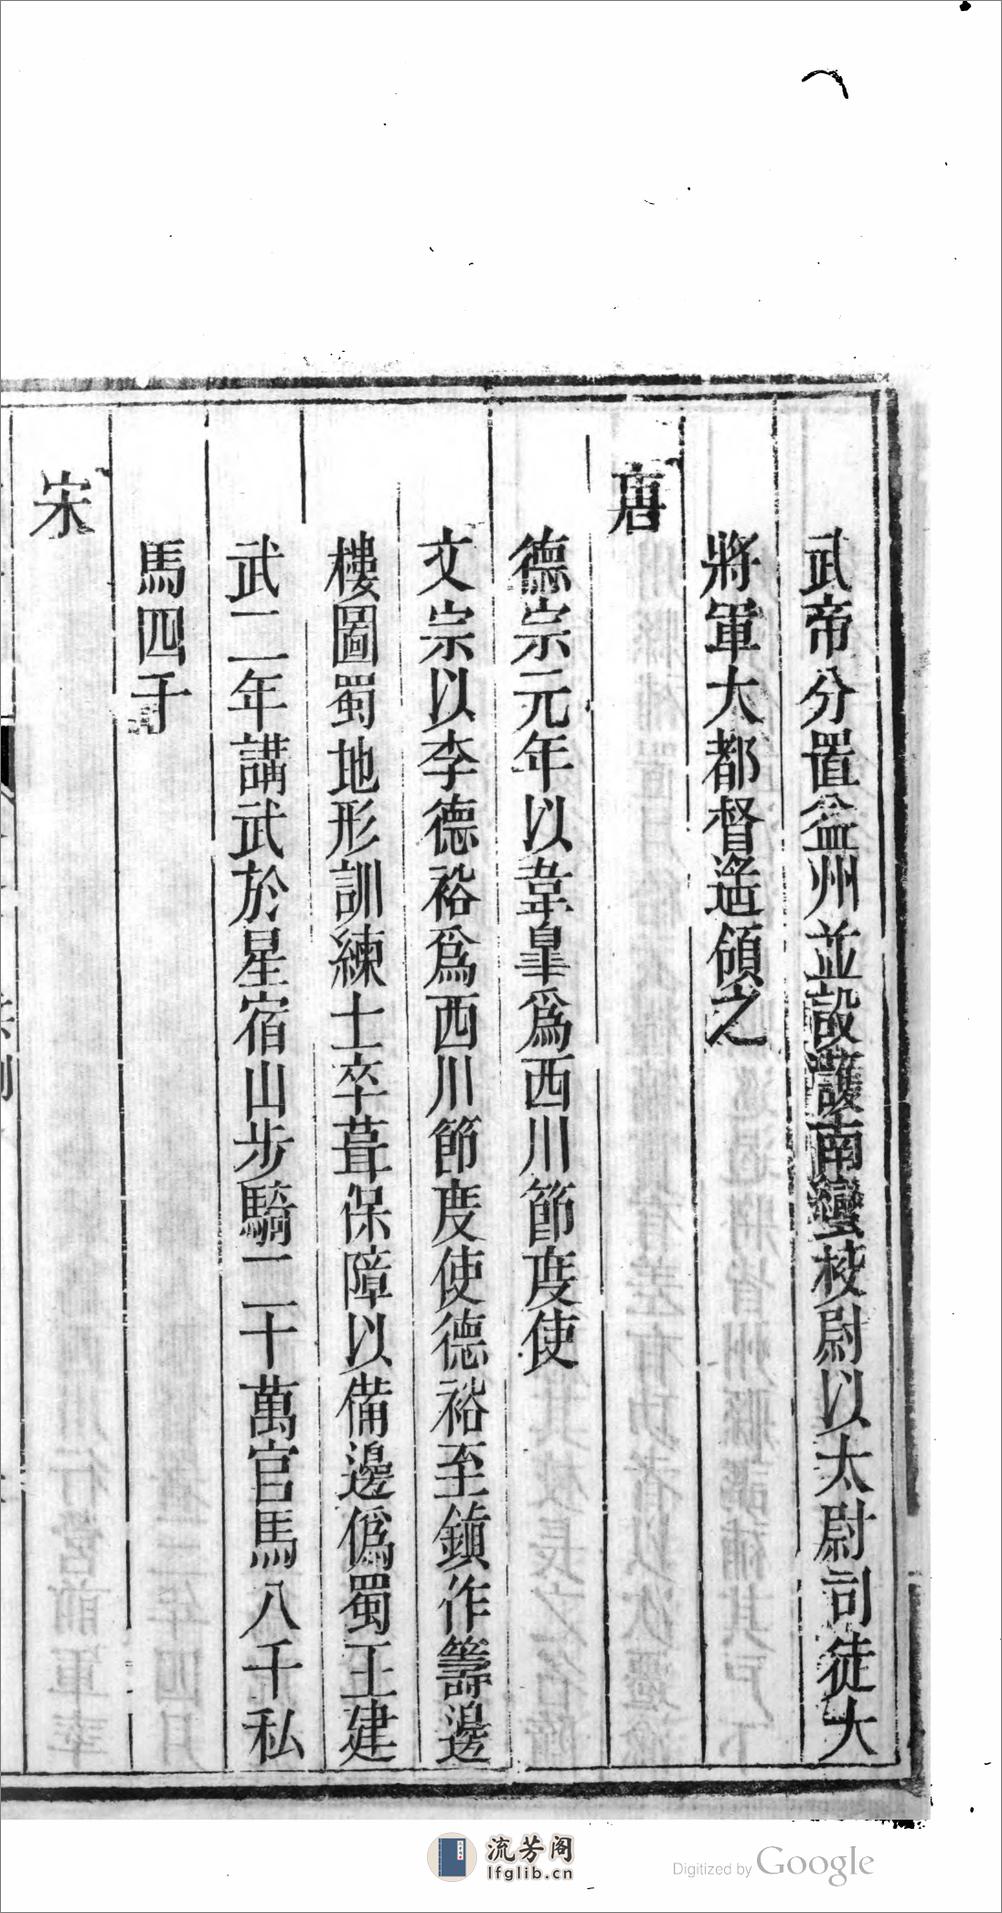 武帝分置益州並設護南蠻校尉以太尉司徒大
將軍大都督遙領之
唐
德宗元年以韋臯爲西川節度使
文宗以李德裕爲西川節度使德裕至鎮作籌邊
樓圖蜀地形訓練士卒葺保障以備邊僞蜀王建
武二年講武於星宿山步騎二十萬官馬八千私
馬四千
宋
流芳阁
lfglib.cn
Digitized by Google